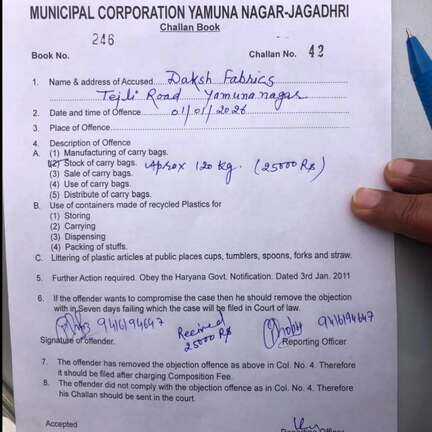 MUNICIPAL CORPORATION YAMUNA NAGAR-JAGADHRI
Challan Book
246
Book No. Challan No. 43
1. Name & address of Accused Daksh Fabrics
Tejli Road Yamunanagar
2. Date and time of Offence 01/01/2026
3. Place of Offence
4. Description of Offence
A. (1) Manufacturing of carry bags.
(2) Stock of carry bags. Aprox 120 kg. (25000 Rs)
(3) Sale of carry bags.
(4) Use of carry bags.
(5) Distribute of carry bags.
B. Use of containers made of recycled Plastics for
(1) Storing
(2) Carrying
(3) Dispensing
(4) Packing of stuffs.
C. Littering of plastic articles at public places cups, tumblers, spoons, forks and straw.
5. Further Action required. Obey the Haryana Govt. Notification. Dated 3rd Jan. 2011
6. If the offender wants to compromise the case then he should remove the objection
with in Seven days failing which the case will be filed in Court of law.
9416194647 Recived 25000 Rs 9416194647
Signature of offender. Reporting Officer
7. The offender has removed the objection offence as above in Col. No. 4. Therefore
it should be filed after charging Composition Fee.
8. The offender did not comply with the objection offence as in Col. No. 4. Therefore
his Challan should be sent in the court.
Accepted
Reporting Officer